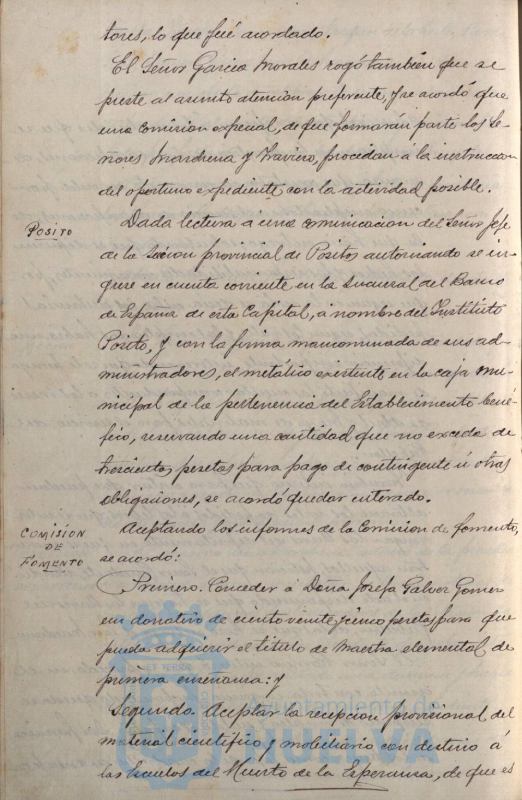 tores, lo que fué acordado.
El Señor Garcia Morales rogó también que se
preste al asunto atencion preferente, y se acordó que
una Comision especial, de que formarán parte los Se-
ñores Marchena y Traviero, procedan á la instruccion
del oportuno expediente con la actividad posible.
POSITO
Dada lectura á una comunicacion del Señor Jefe
de la Seccion provincial de Pósitos autorizando se in-
grese en cuenta corriente en la Sucursal del Banco
de España de esta Capital, á nombre del Instituto
Posito, y con la firma mancomunada de sus ad-
ministradores, el metálico existente en la caja mu-
nicipal de la pertenencia del Establecimiento bené-
fico, reservando una cantidad que no exceda de
trescientas pesetas para pago de contingente ú otras
obligaciones, se acordó quedar enterado.
COMISION
DE
FOMENTO
Aceptando los informes de la Comision de fomento,
se acordó:
Primero. Conceder á Doña Josefa Galvez Gomez
un donativo de ciento veinticinco pesetas para que
pueda adquirir el titulo de Maestra elemental de
primera enseñanza: y
Segundo. Aceptar la recepcion provisional del
material cientifico y mobiliario con destino á
las Escuelas del Huerto de la Esperanza, de que es
Ayuntamiento de
HUELVA